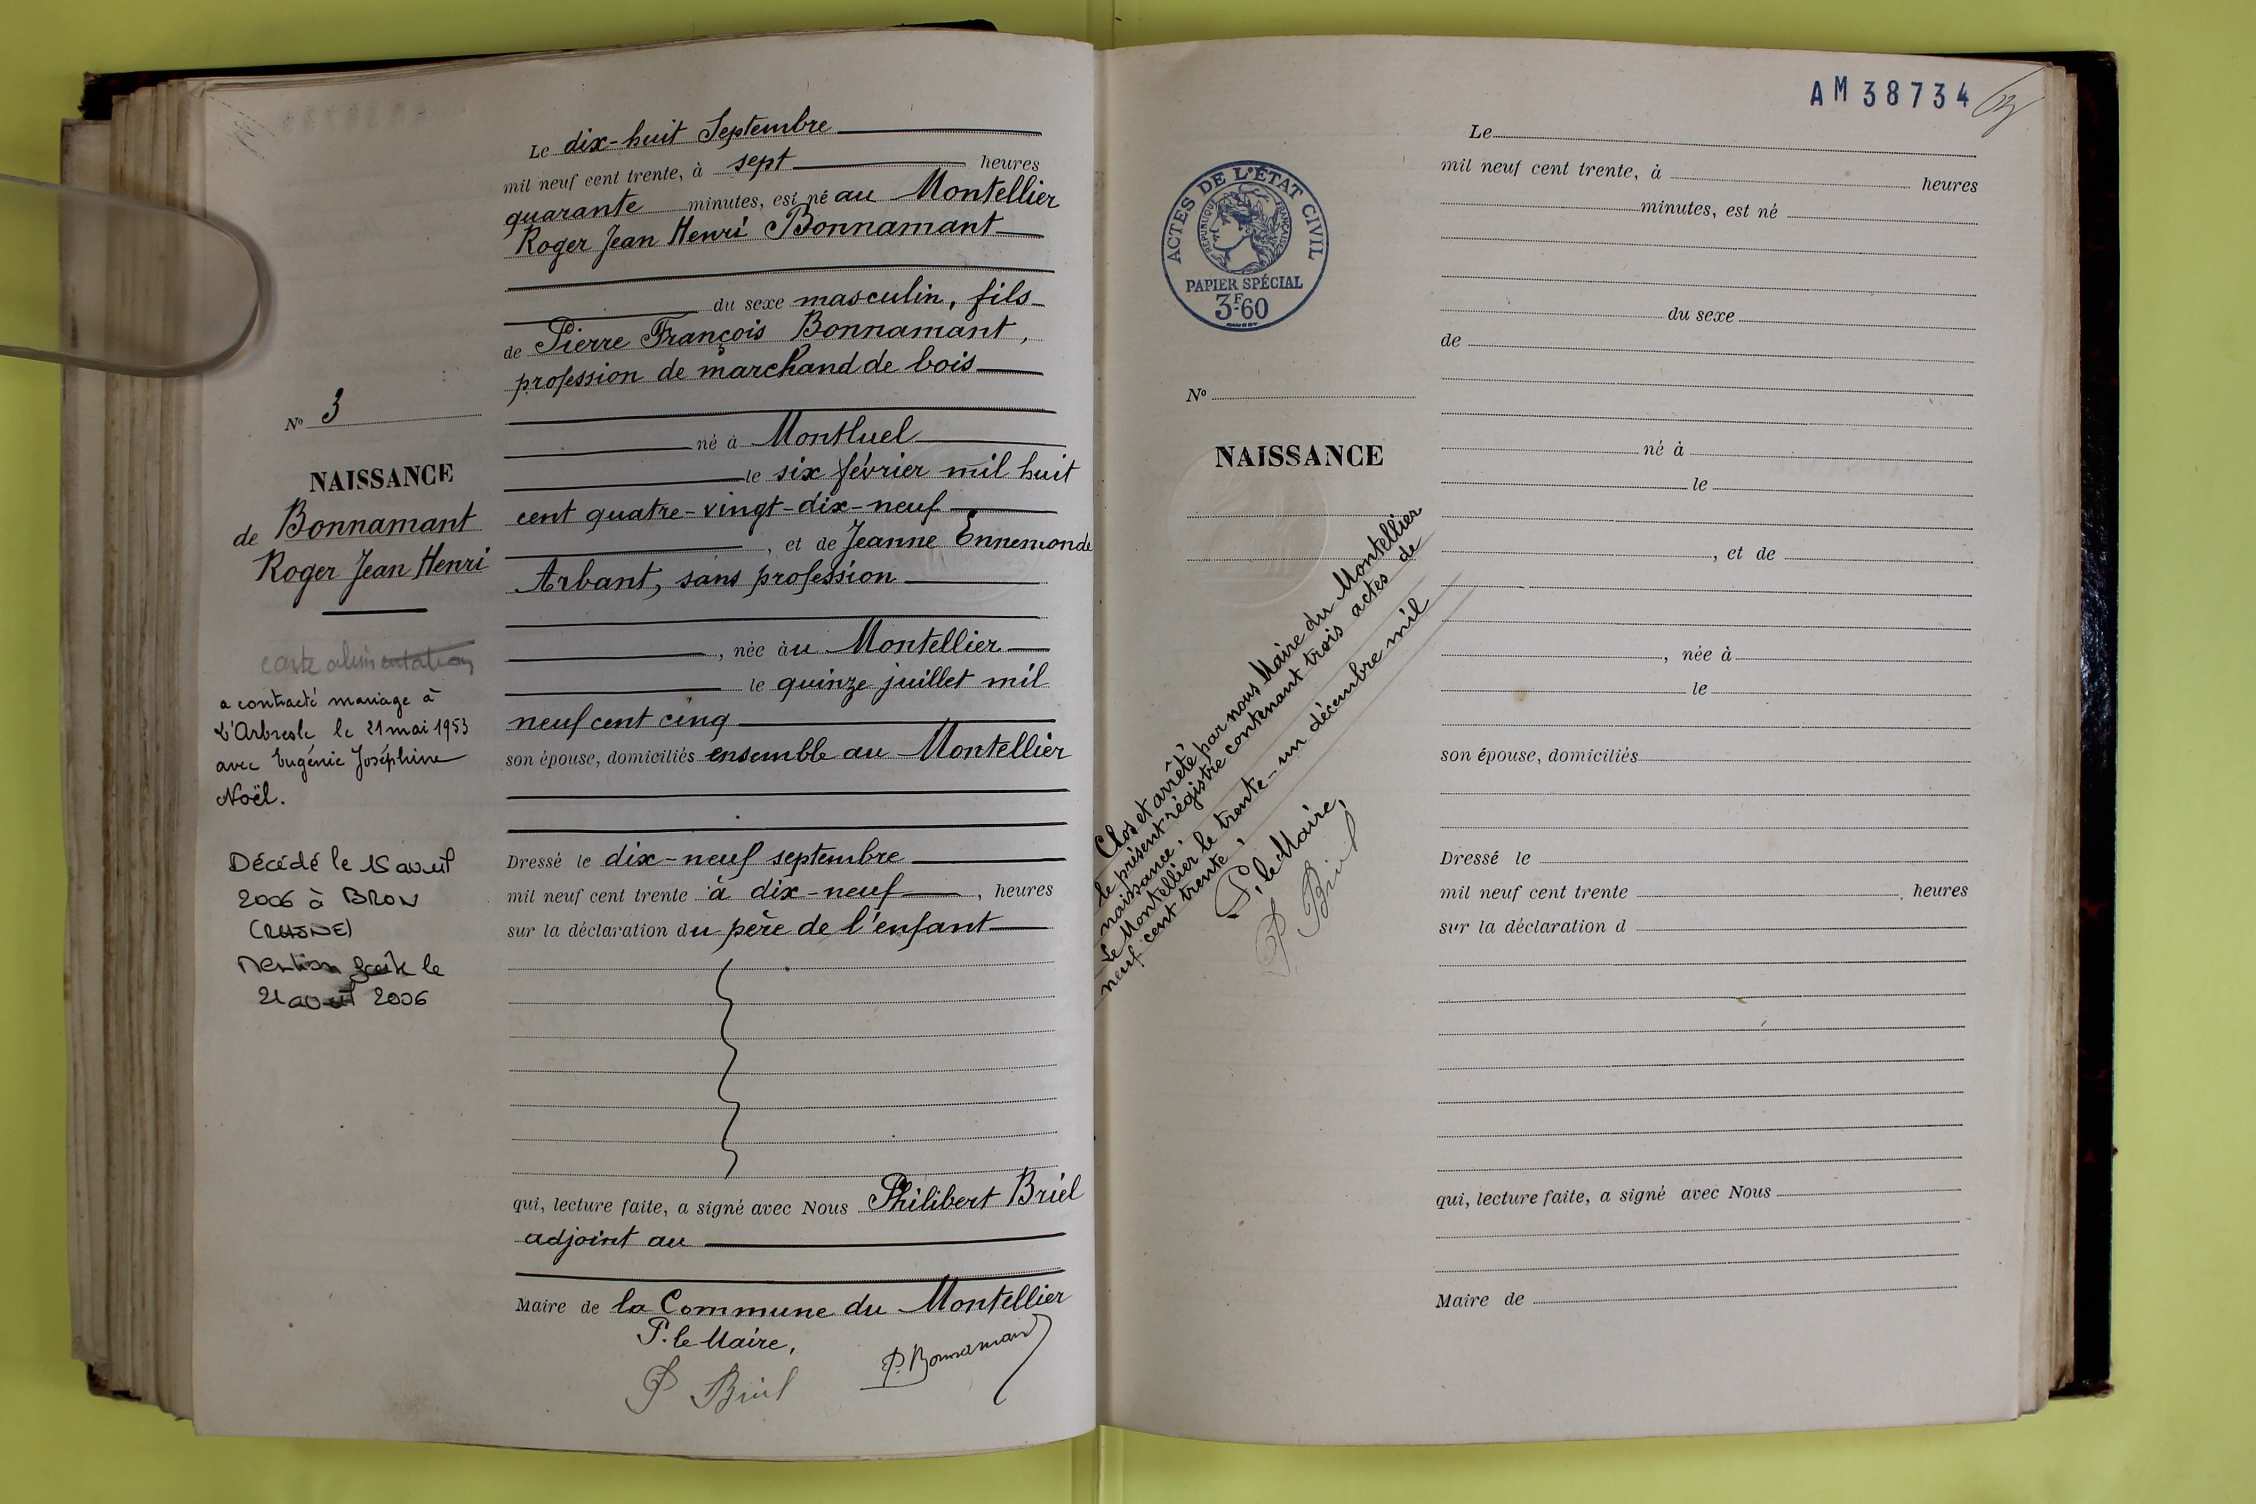 Le dix-huit Septembre
mil neuf cent trente, à sept heures
quarante minutes, est né au Montellier
Roger Jean Henri Bonnamant
du sexe masculin, fils
de Pierre François Bonnamant,
profession de marchand de bois
né à Montluel
le six février mil huit
cent quatre-vingt-dix-neuf
, et de Jeanne Ennemonde
Arbant, sans profession
, née au Montellier
le quinze juillet mil
neuf cent cinq
son épouse, domiciliés ensemble au Montellier
Dressé le dix-neuf septembre
mil neuf cent trente à dix-neuf, heures
sur la déclaration du père de l'enfant
qui, lecture faite, a signé avec Nous Philibert Briel
adjoint au
Maire de la Commune du Montellier
P. le Maire,
P Briel
P. Bonnamant
No 3
NAISSANCE
de Bonnamant
Roger Jean Henri
carte alimentation
a contracté mariage à
L'Arbresle le 21 mai 1953
avec Eugénie Joséphine
Noël.
Décédé le 15 avril
2006 à BRON
(RHÔNE)
Mention faite le
21 avril 2006
AM 38734
ACTES DE L'ÉTAT CIVIL
RÉPUBLIQUE FRANÇAISE
PAPIER SPÉCIAL
3F.60
No
NAISSANCE
Clos et arrêté par nous Maire du Montellier
le présent régistre contenant trois actes de
naissance.
Le Montellier le trente-un décembre mil
neuf cent trente.
P. le Maire,
P Briel
Le
mil neuf cent trente, à heures
minutes, est né
du sexe
de
né à
le
, et de
, née à
le
son épouse, domiciliés
Dressé le
mil neuf cent trente , heures
sur la déclaration d
qui, lecture faite, a signé avec Nous
Maire de